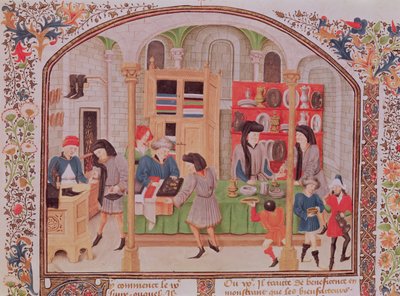 commence le
livre ouquel Il
Il traite De beneficence en
monstrant que les bienfaiteurs